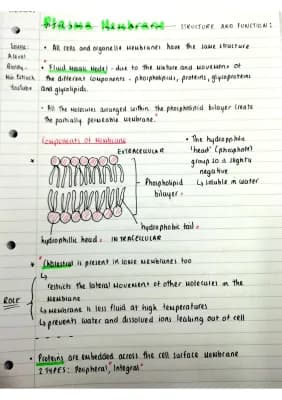 Plasma Membrane - STRUCTURE AND FUNCTION:
Source:
A level
Biology -
Miss Estruch
YouTube
• All cells and organelle membranes have the same structure
• Fluid Mosaic Model - due to the mixture and movement of
the different components - phospholipids, proteins, glycoproteins
and glycolipids.
- All the molecules arranged within the phospholipid bilayer create
the partially permeable membrane.
Components of Membrane
EXTRACELLULAR
Phospholipid
bilayer.
hydrophobic tail.
hydrophillic head. INTRACELLULAR
• The hydrophilic
'head' (phosphate)
group is a slightly
negative
↳ soluble in water
• Cholesterol is present in some membranes too
ROLE
↳ restricts the lateral movement of other molecules in the
membrane
↳ membrane is less fluid at high temperatures
↳ prevents water and dissolved ions leaking out of cell
• Proteins are embedded across the cell surface membrane
2 TYPES: Peripheral, Integral